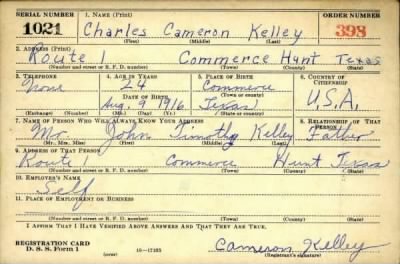 SERIAL NUMBER 1. NAME (Print) ORDER NUMBER
1021 Charles Cameron Kelley 398
(First) (Middle) (Last)
2. ADDRESS (Print)
Route 1 Commerce Hunt Texas
(Number and street or R. F. D. number) (Town) (County) (State)
3. TELEPHONE 4. AGE IN YEARS 5. PLACE OF BIRTH 6. COUNTRY OF CITIZENSHIP
None 24 Commerce
DATE OF BIRTH (Town or county)
Aug. 9 1916 Texas U.S.A.
(Exchange) (Number) (Mo.) (Day) (Yr.) (State or country)
7. NAME OF PERSON WHO WILL ALWAYS KNOW YOUR ADDRESS 8. RELATIONSHIP OF THAT PERSON
Mr. John Timothy Kelley Father
(Mr., Mrs., Miss) (First) (Middle) (Last)
9. ADDRESS OF THAT PERSON
Route 1 Commerce Hunt Texas
(Number and street or R. F. D. number) (Town) (County) (State)
10. EMPLOYER'S NAME
Self
11. PLACE OF EMPLOYMENT OR BUSINESS
(Number and street or R. F. D. number) (Town) (County) (State)
I AFFIRM THAT I HAVE VERIFIED ABOVE ANSWERS AND THAT THEY ARE TRUE.
REGISTRATION CARD Cameron Kelley
D. S. S. Form 1 (over) 16—17105 (Registrant's signature)